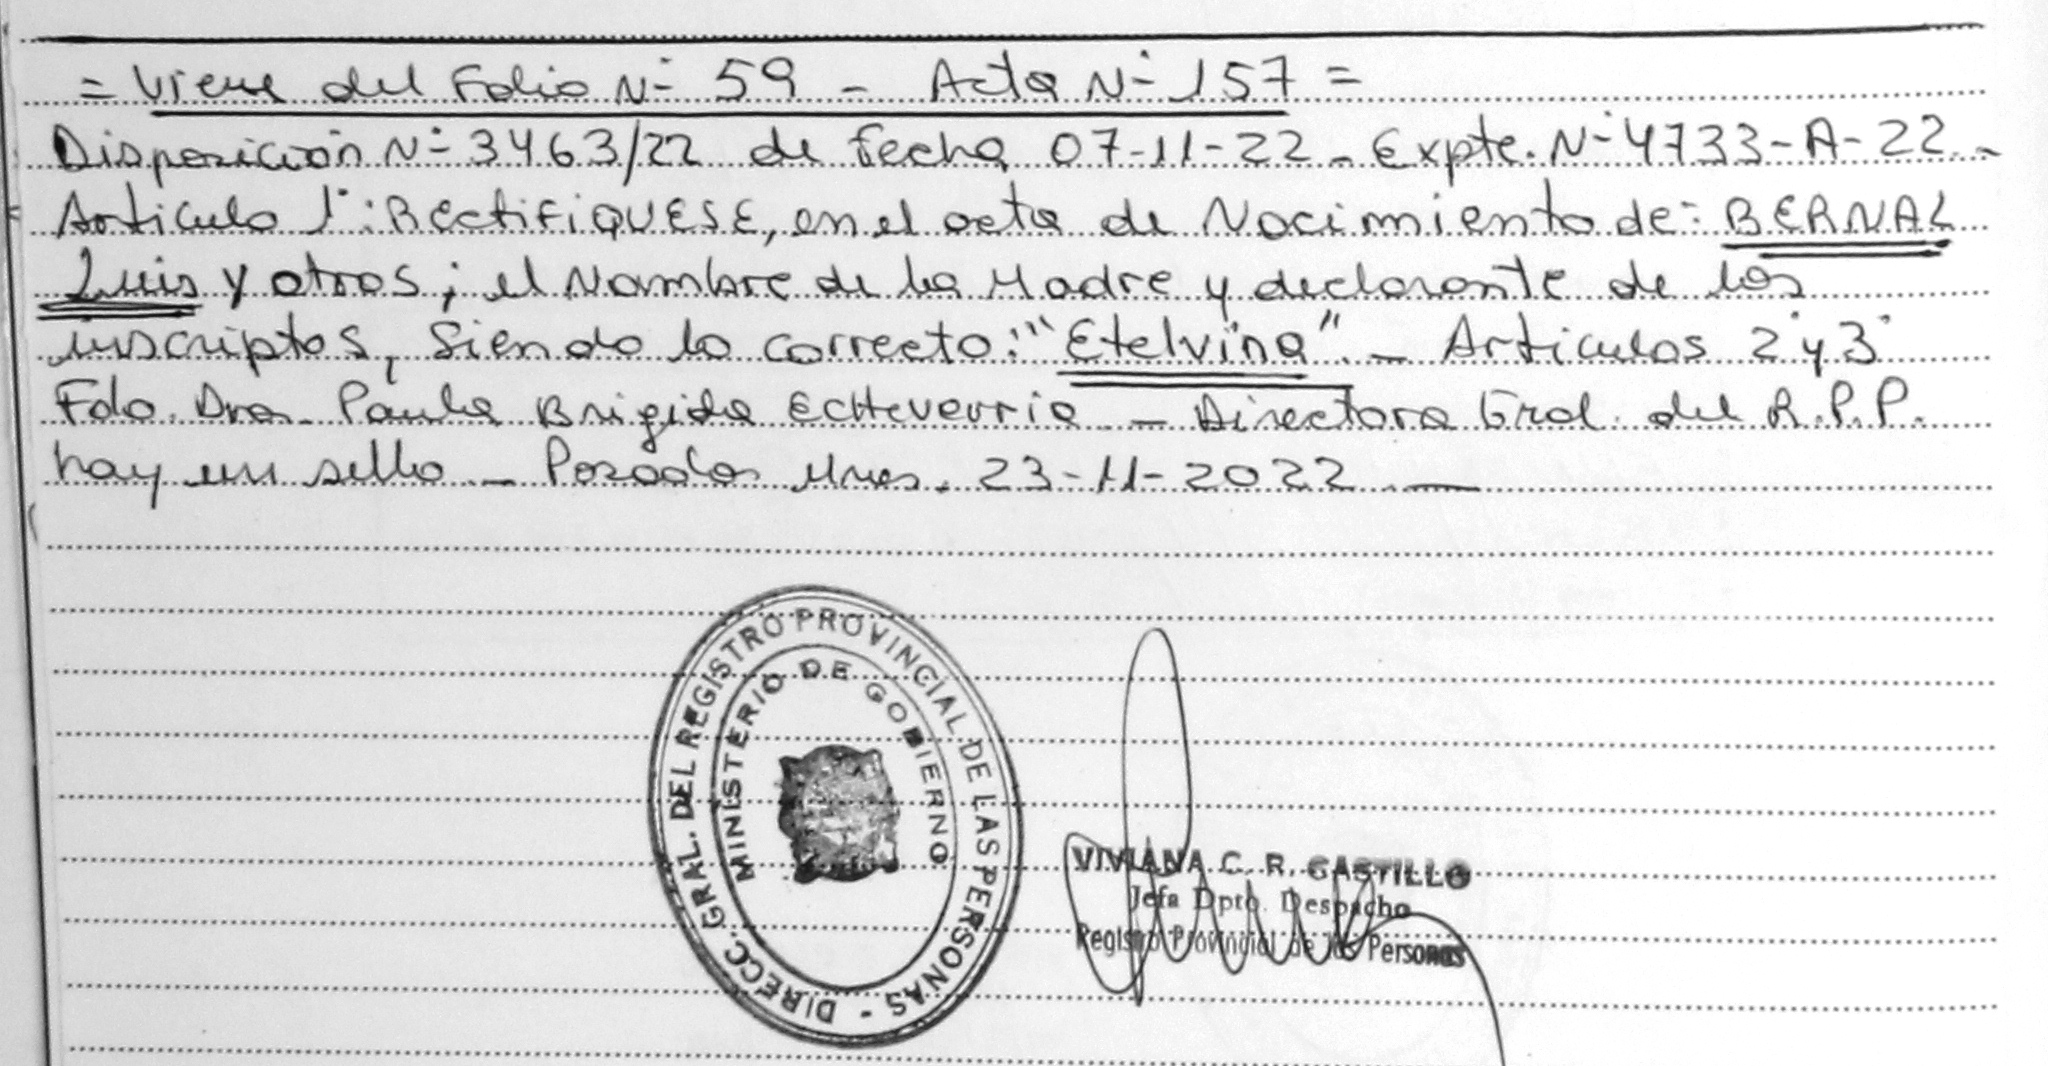 = Viene del Folio Nº 59 - Acta Nº 157 =
Disposición Nº 3463/22 de fecha 07-11-22 - Expte. Nº 4733-A-22 -
Artículo 1º: RECTIFIQUESE, en el acta de Nacimiento de: BERNAL
Luis y otros; el Nombre de la Madre y declarante de los
inscriptos, siendo lo correcto: "Etelvina" - Artículos 2º y 3º
Fdo. Dra. Paula Brigida Echeverria - Directora Gral. del R.P.P.
hay un sello - Posadas Mnes. 23-11-2022 -
DIRECC. GRAL. DEL REGISTRO PROVINCIAL DE LAS PERSONAS -
MINISTERIO DE GOBIERNO
VIVIANA C. R. CASTILLO
Jefa Dpto. Despacho
Registro Provincial de las Personas